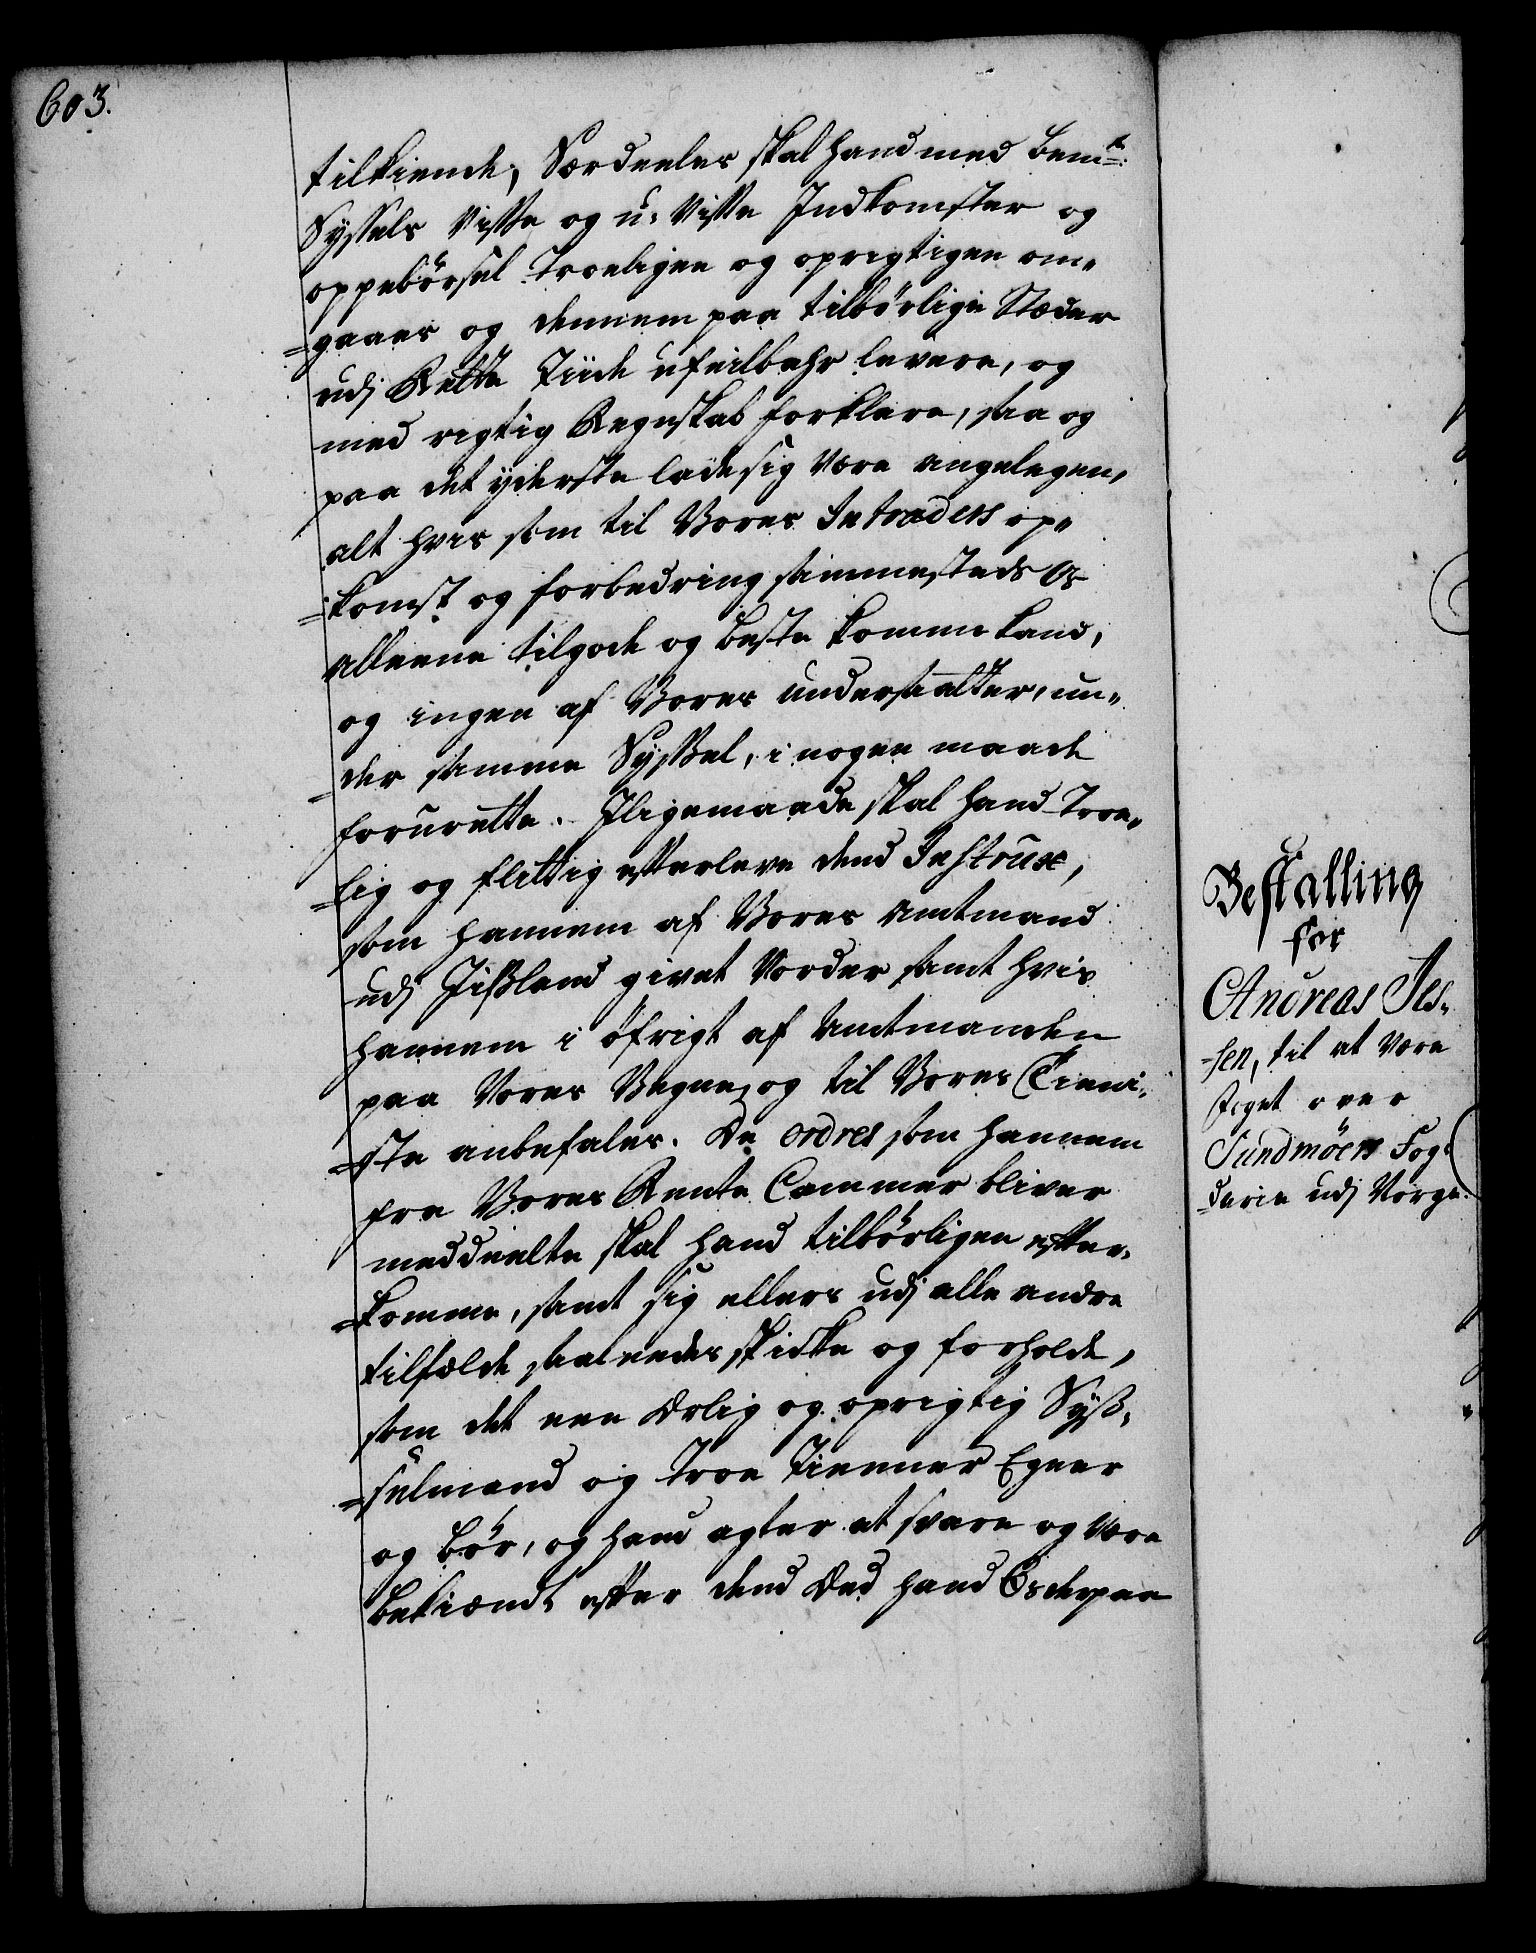 603.
tilkiende, Særdeeles skal hand med bem.te
Syssels Visse og u-Visse Indkomster og
oppebörsel Troeligen og oprigtigen om-
gaaes og dennem paa tilbørlige Stæder
udj Rette Tiide ufeilbahr levere, og
med rigtig Regnskab forklare, saa og
paa det yderste lade sig være angelegen,
alt hvis som til Vores Intraders op-
komst og forbedring sammesteds Os
alleene tilgode og beste komme kand,
og ingen af Vores undersaatter, un-
der samme Syssel, i nogen maade
forurette. Iligemaade skal hand Troe-
lig og flittig efterleve dend Instrux,
som hannem af Vores Amtmand
udj Jissland givet Vorder samt hvis
hannem i öfrigt af Amtmanden
paa Vores Vegne, og til Vores Tieni-
ste anbefales. De ordres som hannem
fra Vores Rente Cammer bliver
meddeelte skal hand tilbörligen efter-
komme, samt sig ellers udj alle andre
tilfælde saaleedes skikke og forholde,
som det een Ærlig og oprigtig Syss-
selmand og Troe Tienner Egner
og bör, og hand agter at svare og være
bekiendt efter dend Æed hand Os derpaa
Bestalling
for
Andreas Jes-
sen, til at være
foget over
Sundmöers Fog-
derie udj Norge.